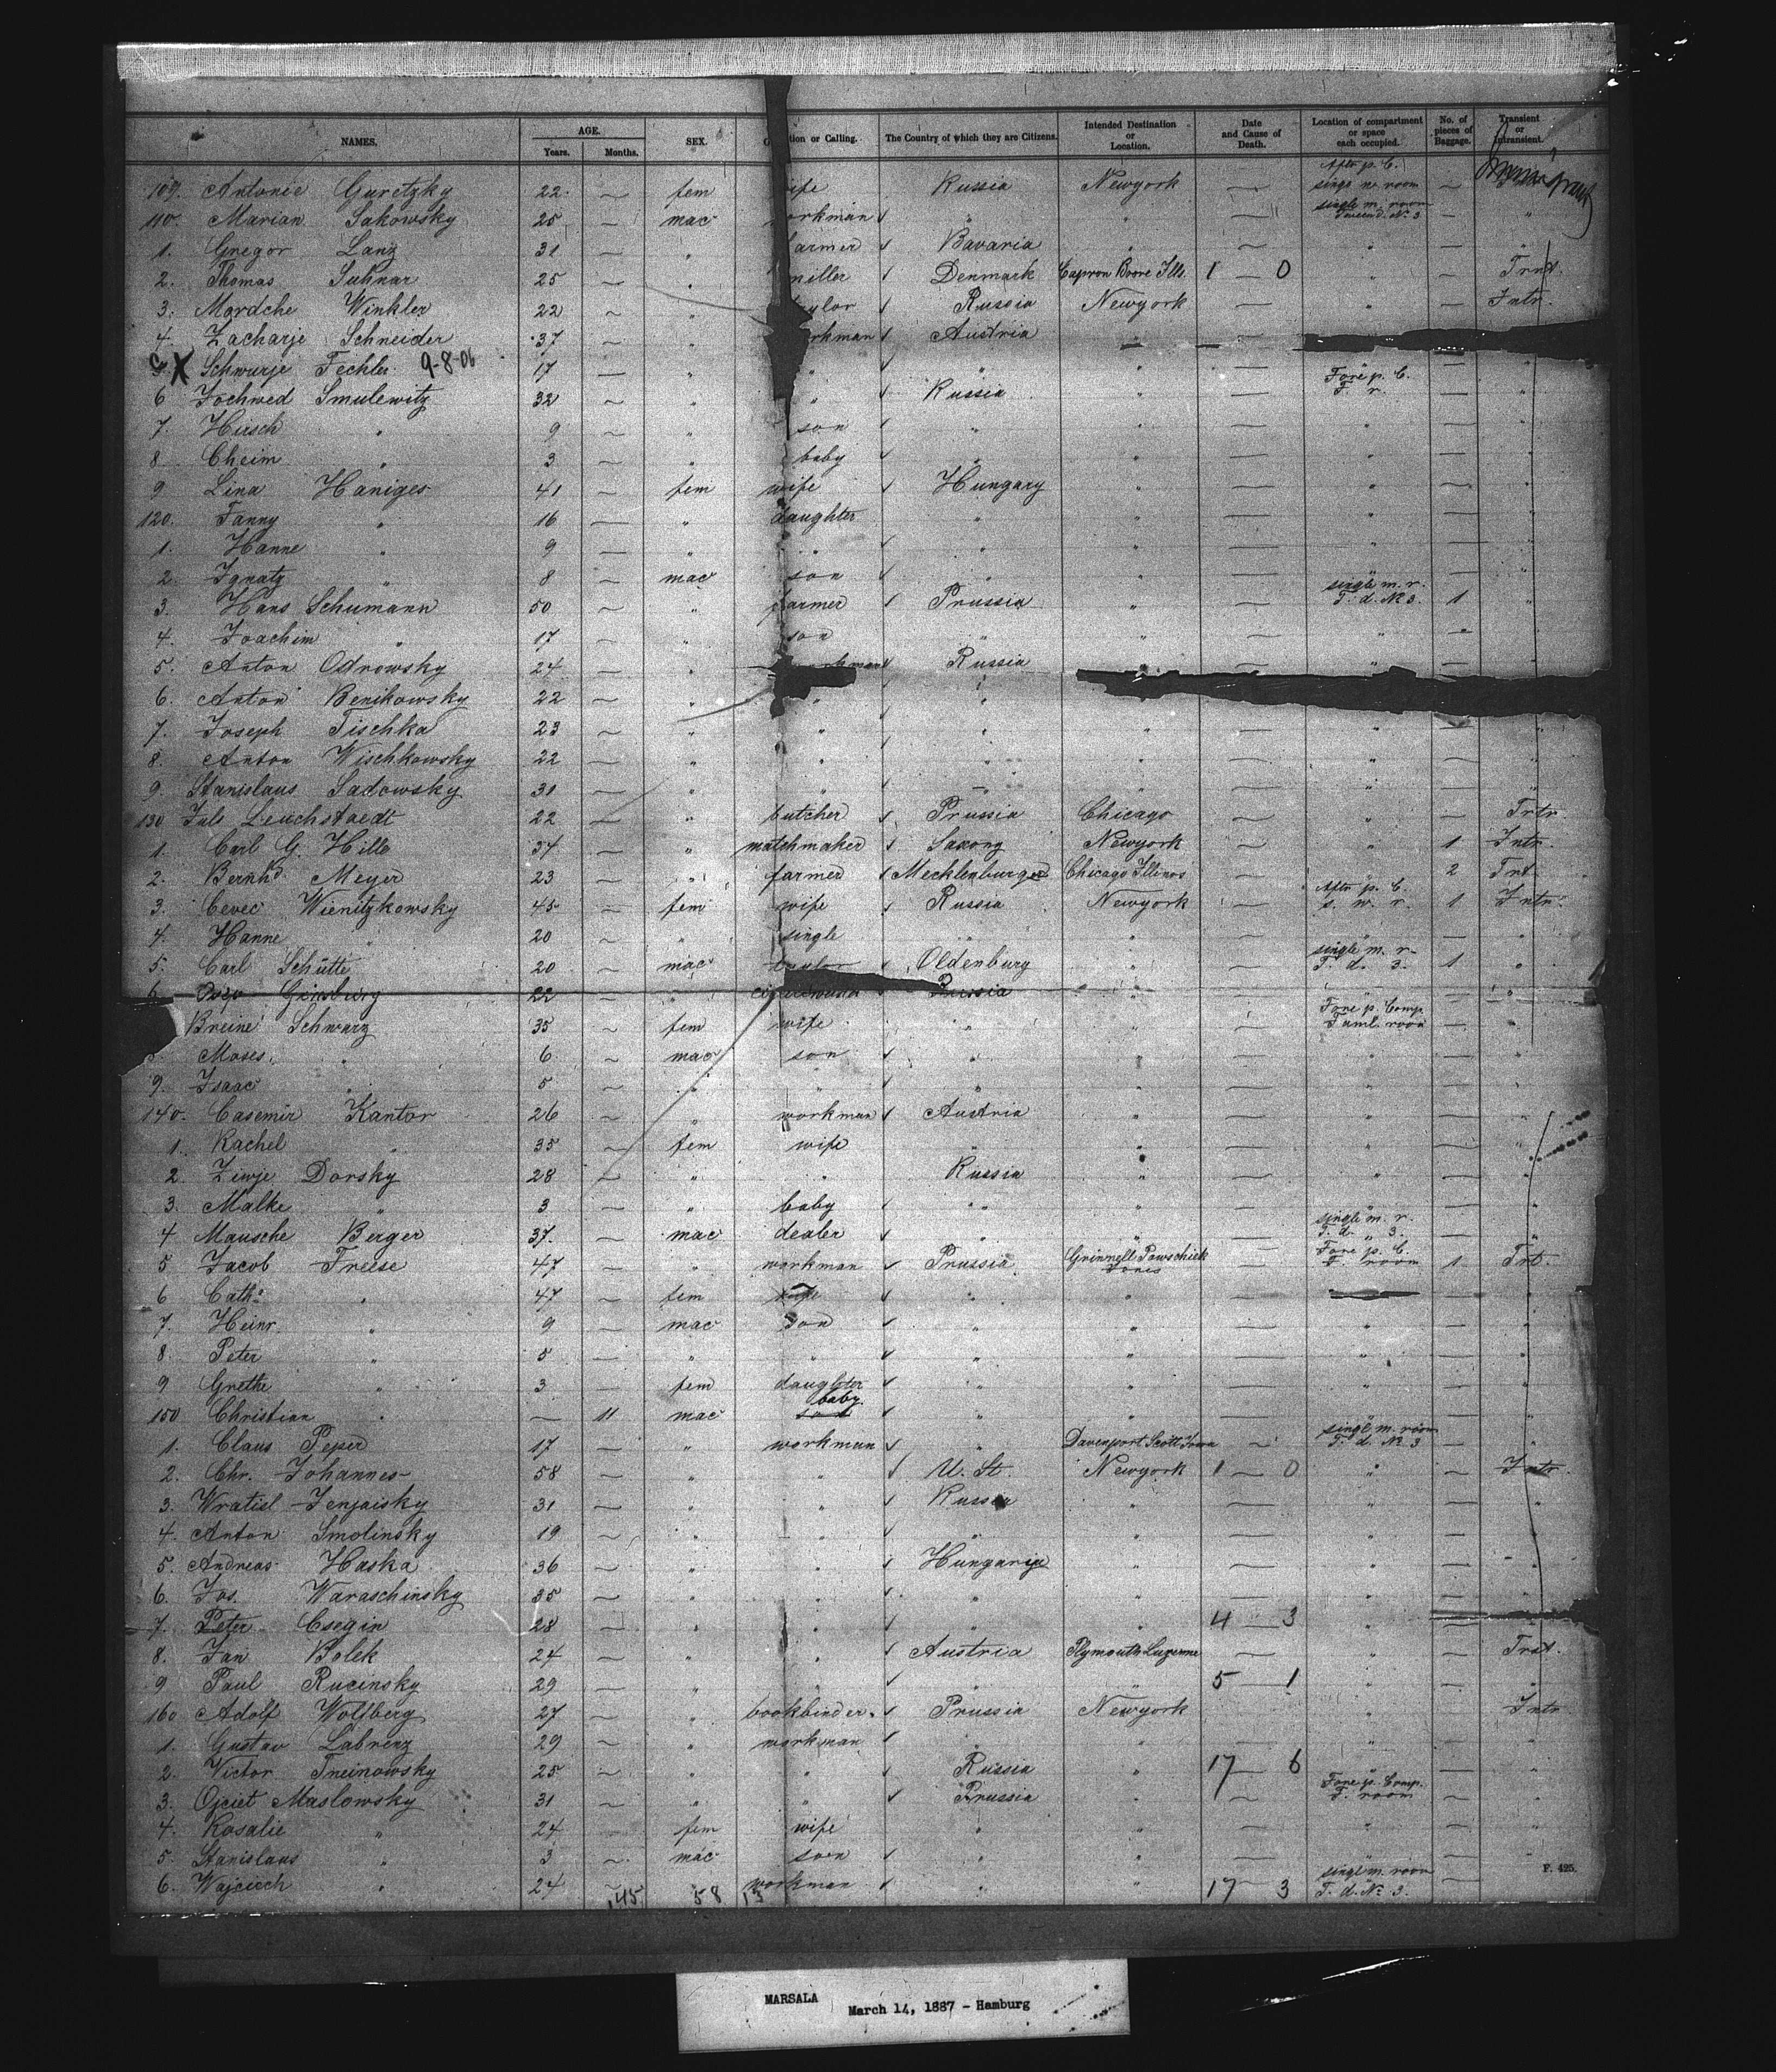 NAMES. AGE. Years. Months. SEX. tion or Calling. The Country of which they are Citizens. Intended Destination or Location. Date and Cause of Death. Location of compartment or space each occupied. No. of pieces of Baggage. Transient or Intransient.
Aftr p. C.
109. Antonie Guretzky 22 — fem ife Russia Newyork — single w. room —
single m. room
110. Marian Sakowsky 25 — mac orkman " " — Tweend. No 3 — "
1. Gregor Lanz 31 — " armer Bavaria " — " — "
2. Thomas Suhnar 25 — " miller Denmark Capron Boone Ills. 1 — 0 " — Trnt.
3. Mordche Winkler 22 — " ylor Russia Newyork — " — Intr.
4. Zacharje Schneider 37 — " rkman Austria "
X Schwarje Fechler 9-8-06 17 — " " " " — — "
Fore p. C.
6 Jochwed Smulewitz 32 — " " Russia " — F. r. — "
7. Hirsch " 9 — " son " " — " — "
8 Cheim " 3 — " baby " " — " — "
9 Lina Haniges 41 — fem wife Hungary " — " — "
120. Fanny " 16 — " daughter " " — " — "
1. Hanne " 9 — " " " " — " — "
2. Ignatz " 8 — mac son " " — " — "
single m. r.
3. Hans Schumann 50 — " farmer Prussia " — T. d. No 3. 1 "
4. Joachim " 17 — " son " " — " — "
5. Anton Odrowsky 24 — " rkman Russia — " —
6. Anton Benikowsky 22 — " " "
7. Joseph Tischka 23 — " " " " — " — "
8. Anton Wischkowsky 22 — " " " " — " — "
9. Stanislaus Sadowsky 31 — " " " " — " — "
130 Juls Leuchstaedt 22 — " butcher Prussia Chicago — " — Trtr.
1. Carl G. Hille 34 — " matchmaker Saxony Newyork — " 1 Intr.
2. Bernhd. Meyer 23 — " farmer Mecklenburger Chicago Illinois — " 2 Trt.
Aftr p. C.
3. Cevec Wienitzkowsky 45 — fem wife Russia Newyork — s. w. r. 1 Intr.
4. Hanne " 20 — " single " " — " — "
single m. r.
5. Carl Schütte 20 — mac taylor Oldenburg " — T. d. 3. 1 "
6. Ginsburg 22 — " Russia " — " — "
Fore p. Comp.
Breine Schwarz 35 — fem wife " " — Faml. room — "
8. Moses " 6 — mac son " " — " — "
9. Isaac " 5 — " " " " — " — "
140. Casemir Kantor 26 — " workman Austria " — " — "
1. Rachel " 35 — fem wife " " — " — "
2. Ziwje Dorsky 28 — " " Russia " — " — "
3. Malke " 3 — " baby " " — " — "
single m. r.
4 Mausche Berger 37. — mac dealer " " — T. d. " 3. — "
Fore p. C.
5 Jacob Freese 47 — " workman Prussia Grinnell Powschiek — F. room 1 Trt.
6 Cath. " 47 — fem wife " " — —
7. Heinr. " 9 — mac son " " — " — "
8. Peter " 5 — " " " " — " — "
9 Grethe " 3 — fem daughter " " — " — "
baby
150 Christian " — 11 mac son " " — " — "
singl m. room
1. Claus Peper 17 — " workman " Davenport Scott Iowa — T. d. No 3 — "
2. Chr. Johannes 58 — " " U. St. Newyork 1 — 0 " — Intr.
3. Wratisl Jenjaisky 31 — " " Russia " — " — "
4. Anton Smolinsky 19 — " " " " — " — "
5. Andreas Haska 36 — " " Hungarije " — " — "
6. Jos. Waraschinsky 35 — " " " " — " — "
7. Peter Csegin 28 — " " " " 4 — 3 " — "
8. Jan Bolek 24 — " " Austria Plymouth Luzerne — " — Trst.
9 Paul Rucinsky 29 — " " " " 5 — 1 " — "
160 Adolf Woltberg 27 — " bookbinder Prussia Newyork " Intr
1. Gustav Labrenz 29 — " workman " " — " — "
2. Victor Treinowsky 25 — " " Russia " 17 — 6 " — "
Fore p. Comp.
3. Ojciet Maslowsky 31 — " " Prussia " — F. room — "
4. Rosalie " 24 — fem wife " " — " — "
5. Stanislaus " 3 — mac son " " — " — "
singl m. room F. 425.
6. Wajciech " 24 — " workman " " 17 — 3 T. d. No 3. —
145 58 13
MARSALA March 14, 1887 - Hamburg